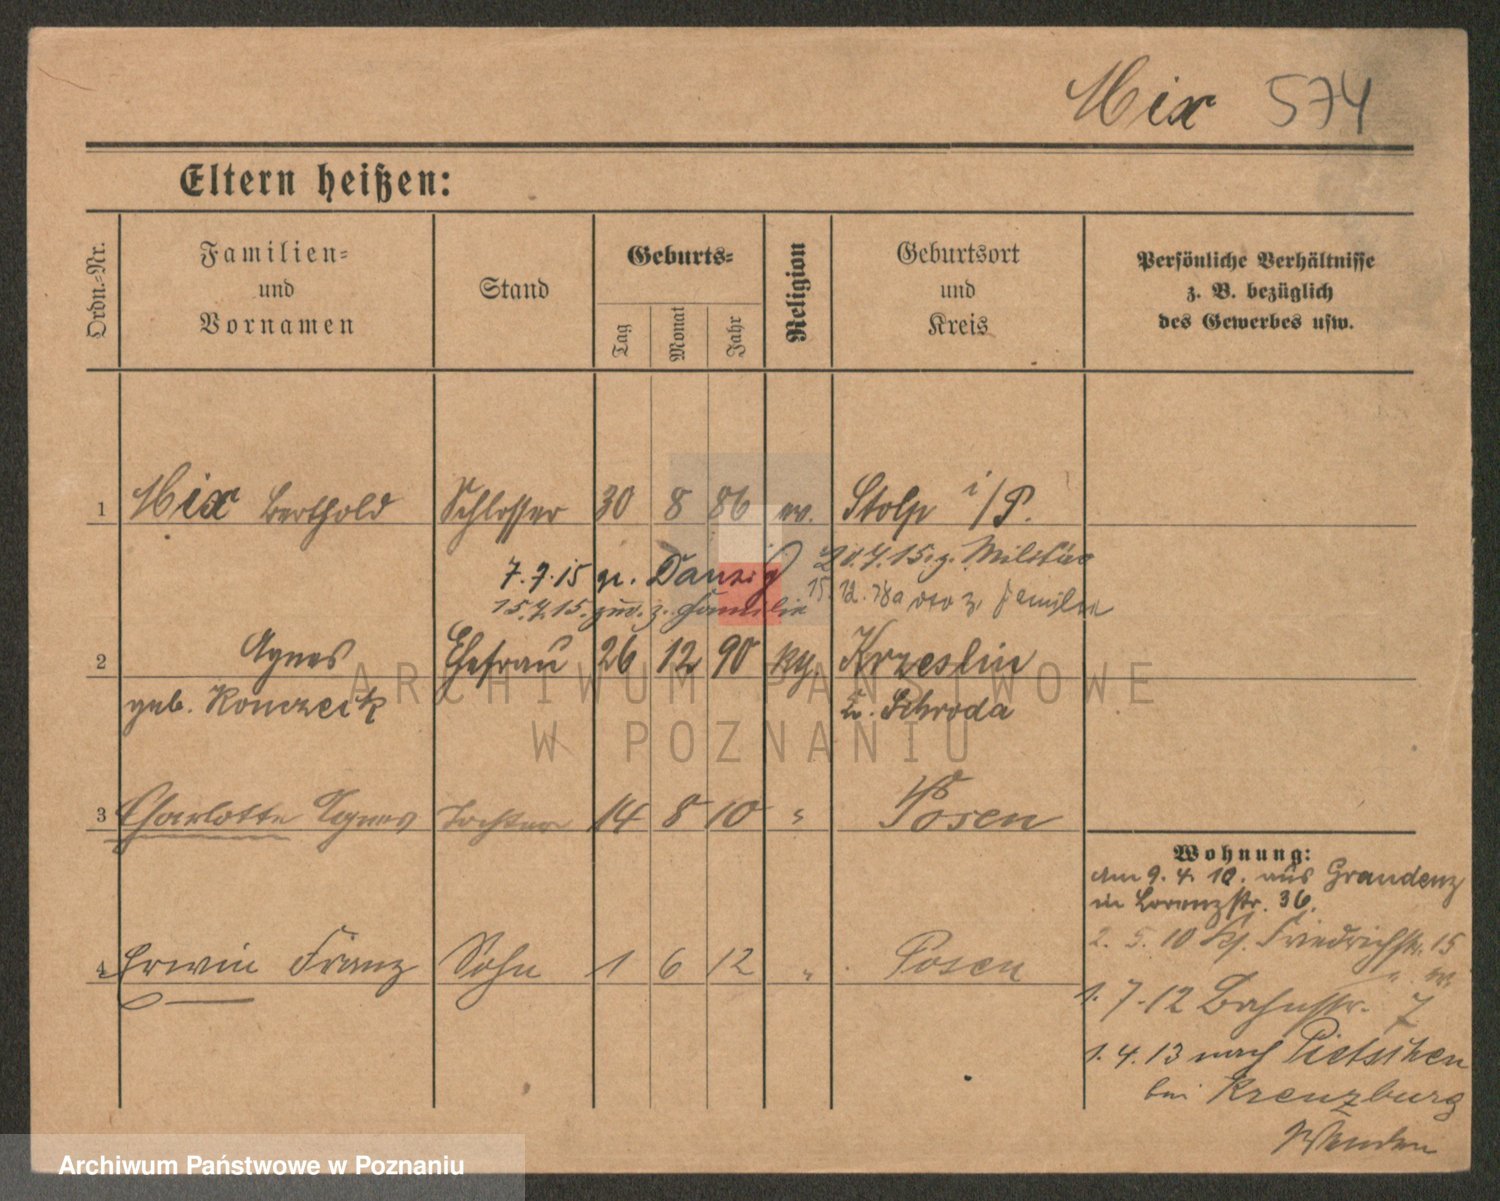 Mix 574
Eltern heißen:
Ordn.-Nr.
Familien- und Vornamen
Stand
Geburts-
Tag
Monat
Jahr
Religion
Geburtsort und Kreis
Persönliche Verhältnisse
z. B. bezüglich
des Gewerbes usw.
1 Mix Berthold Schlosser 30 8 86 ev. Stolp i/P.
7.9.15 Danzig
15.7.15. z. Familie
z. Militär
z. Familie
2 Agnes Ehefrau 26 12 90 kth. Krzeslin
geb. Konczeik
Kr. Schroda
3 Charlotte Agnes Tochter 14 8 10 " Posen
4 Erwin Franz Sohn 1 6 12 " Posen
Wohnung:
am 9. 4. 10. aus Graudenz
in Lorenzstr. 36.
2. 5. 10 Friedrichstr. 15
1. 7. 12 Bahnstr. 7
1. 4. 13 nach Pietschen
bei Kreuzburg
ARCHIWUM PAŃSTWOWE
W POZNANIU
Archiwum Państwowe w Poznaniu